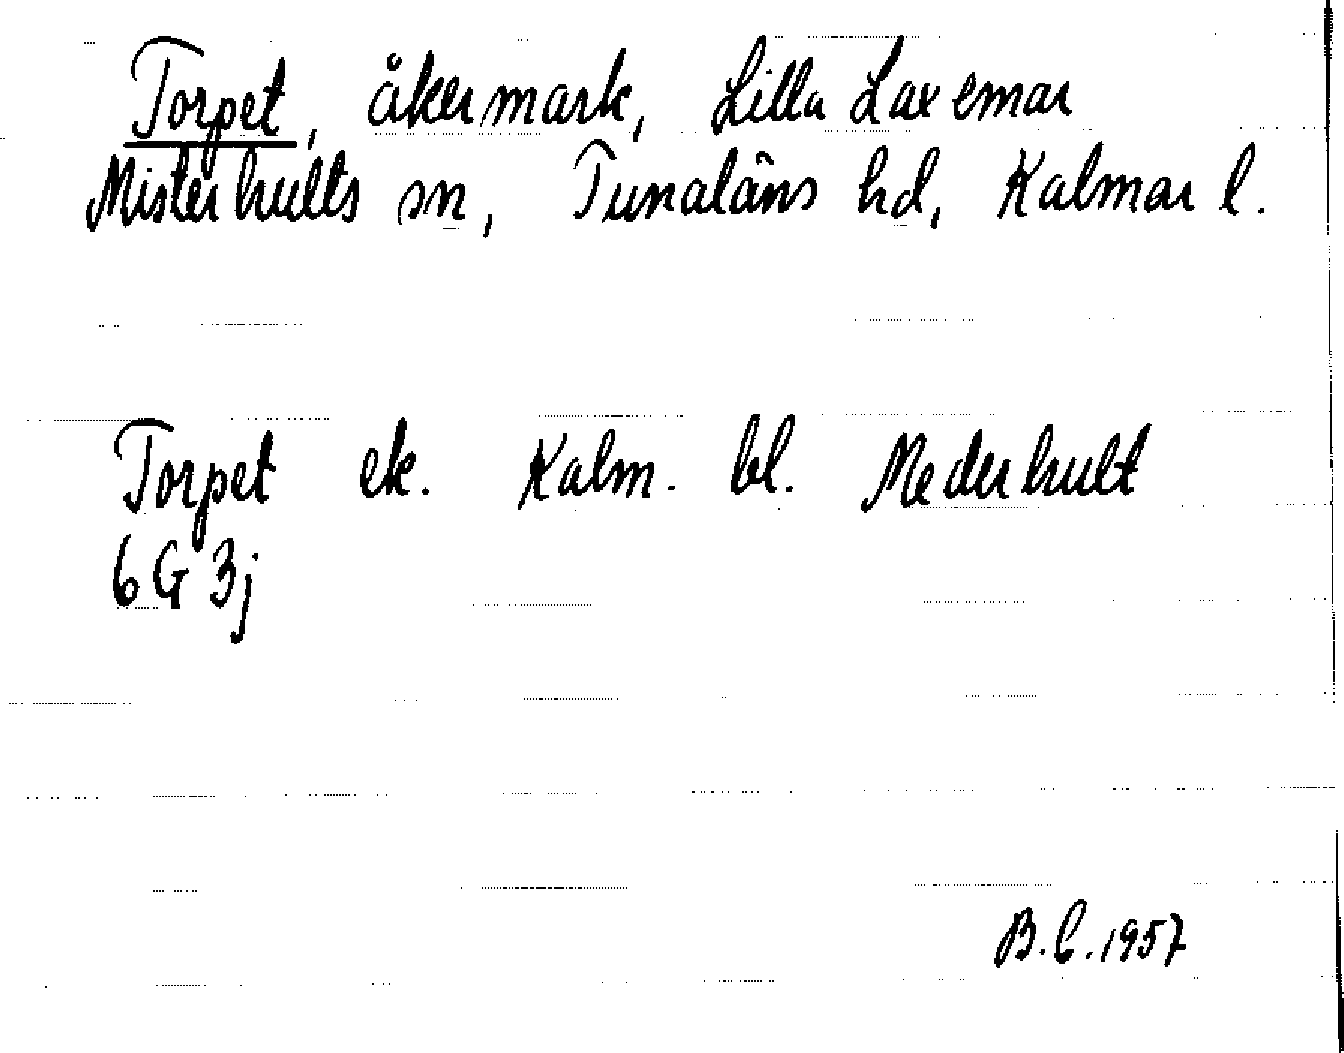 Torpet, åkermark, Lilla Laxemar
Misterhults sn, Tunaläns hd, Kalmar l.
Torpet ek. Kalm. bl. Mederhult
6G 3j
B.C. 1957